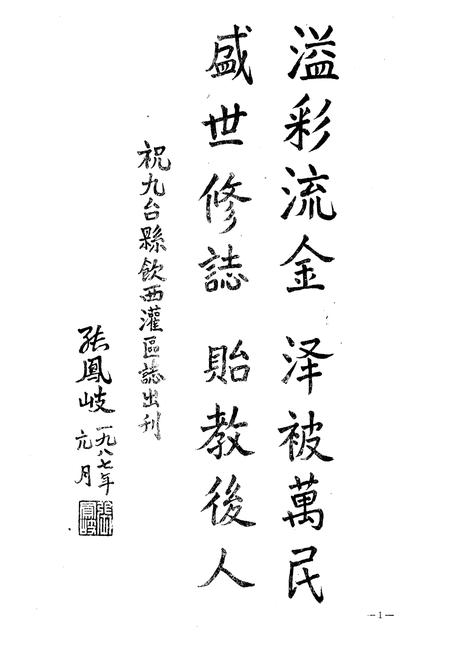 溢彩流金 泽被萬民
盛世修誌 貽教後人
祝九台縣飲西灌區誌出刊
張鳳岐 一九八七年
元月
張鳳岐
—1—